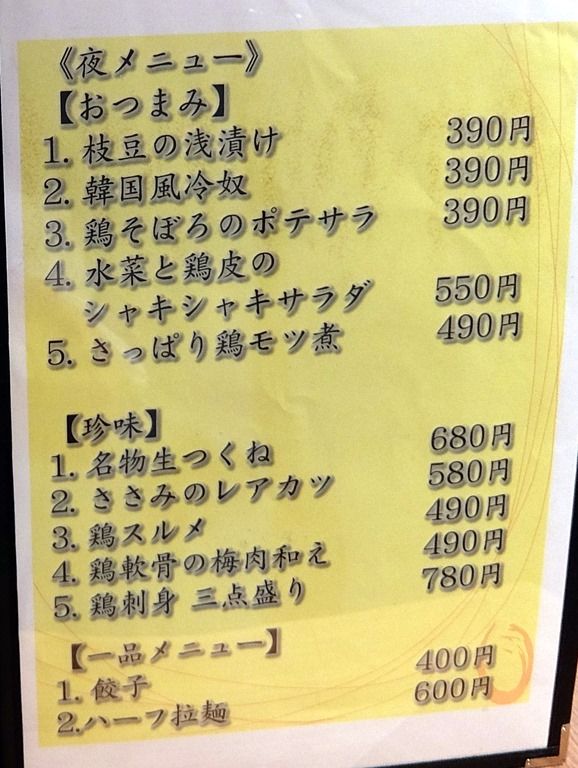 《夜メニュー》
【おつまみ】
1. 枝豆の浅漬け 390円
2. 韓国風冷奴 390円
3. 鶏そぼろのポテサラ 390円
4. 水菜と鶏皮の
シャキシャキサラダ 550円
5. さっぱり鶏モツ煮 490円
【珍味】
1. 名物生つくね 680円
2. ささみのレアカツ 580円
3. 鶏スルメ 490円
4. 鶏軟骨の梅肉和え 490円
5. 鶏刺身 三点盛り 780円
【一品メニュー】
1. 餃子 400円
2.ハーフ拉麺 600円